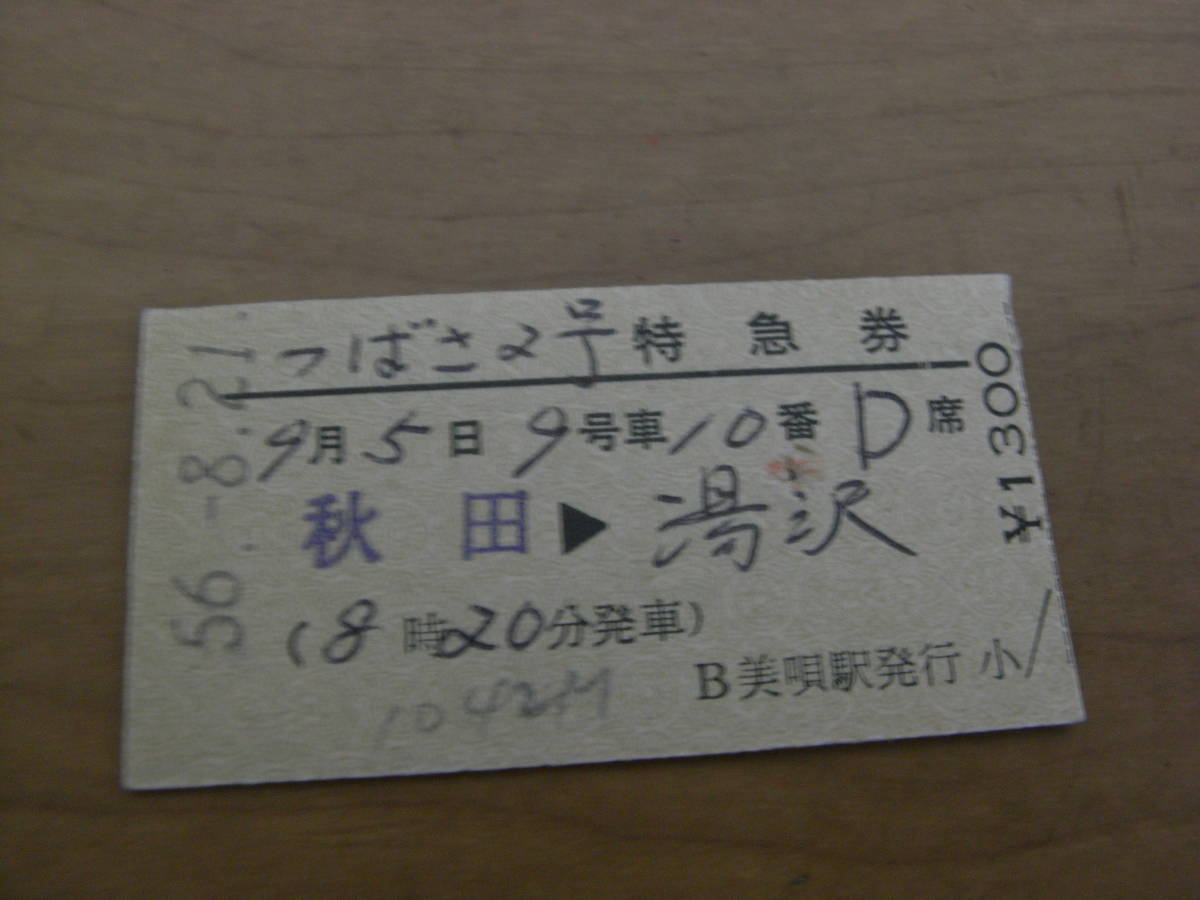 つばさ2号特急券
9月5日9号車10番D席
秋田▶湯沢
(8時20分発車)
B美唄駅発行 小
¥1300
56.-8.21.